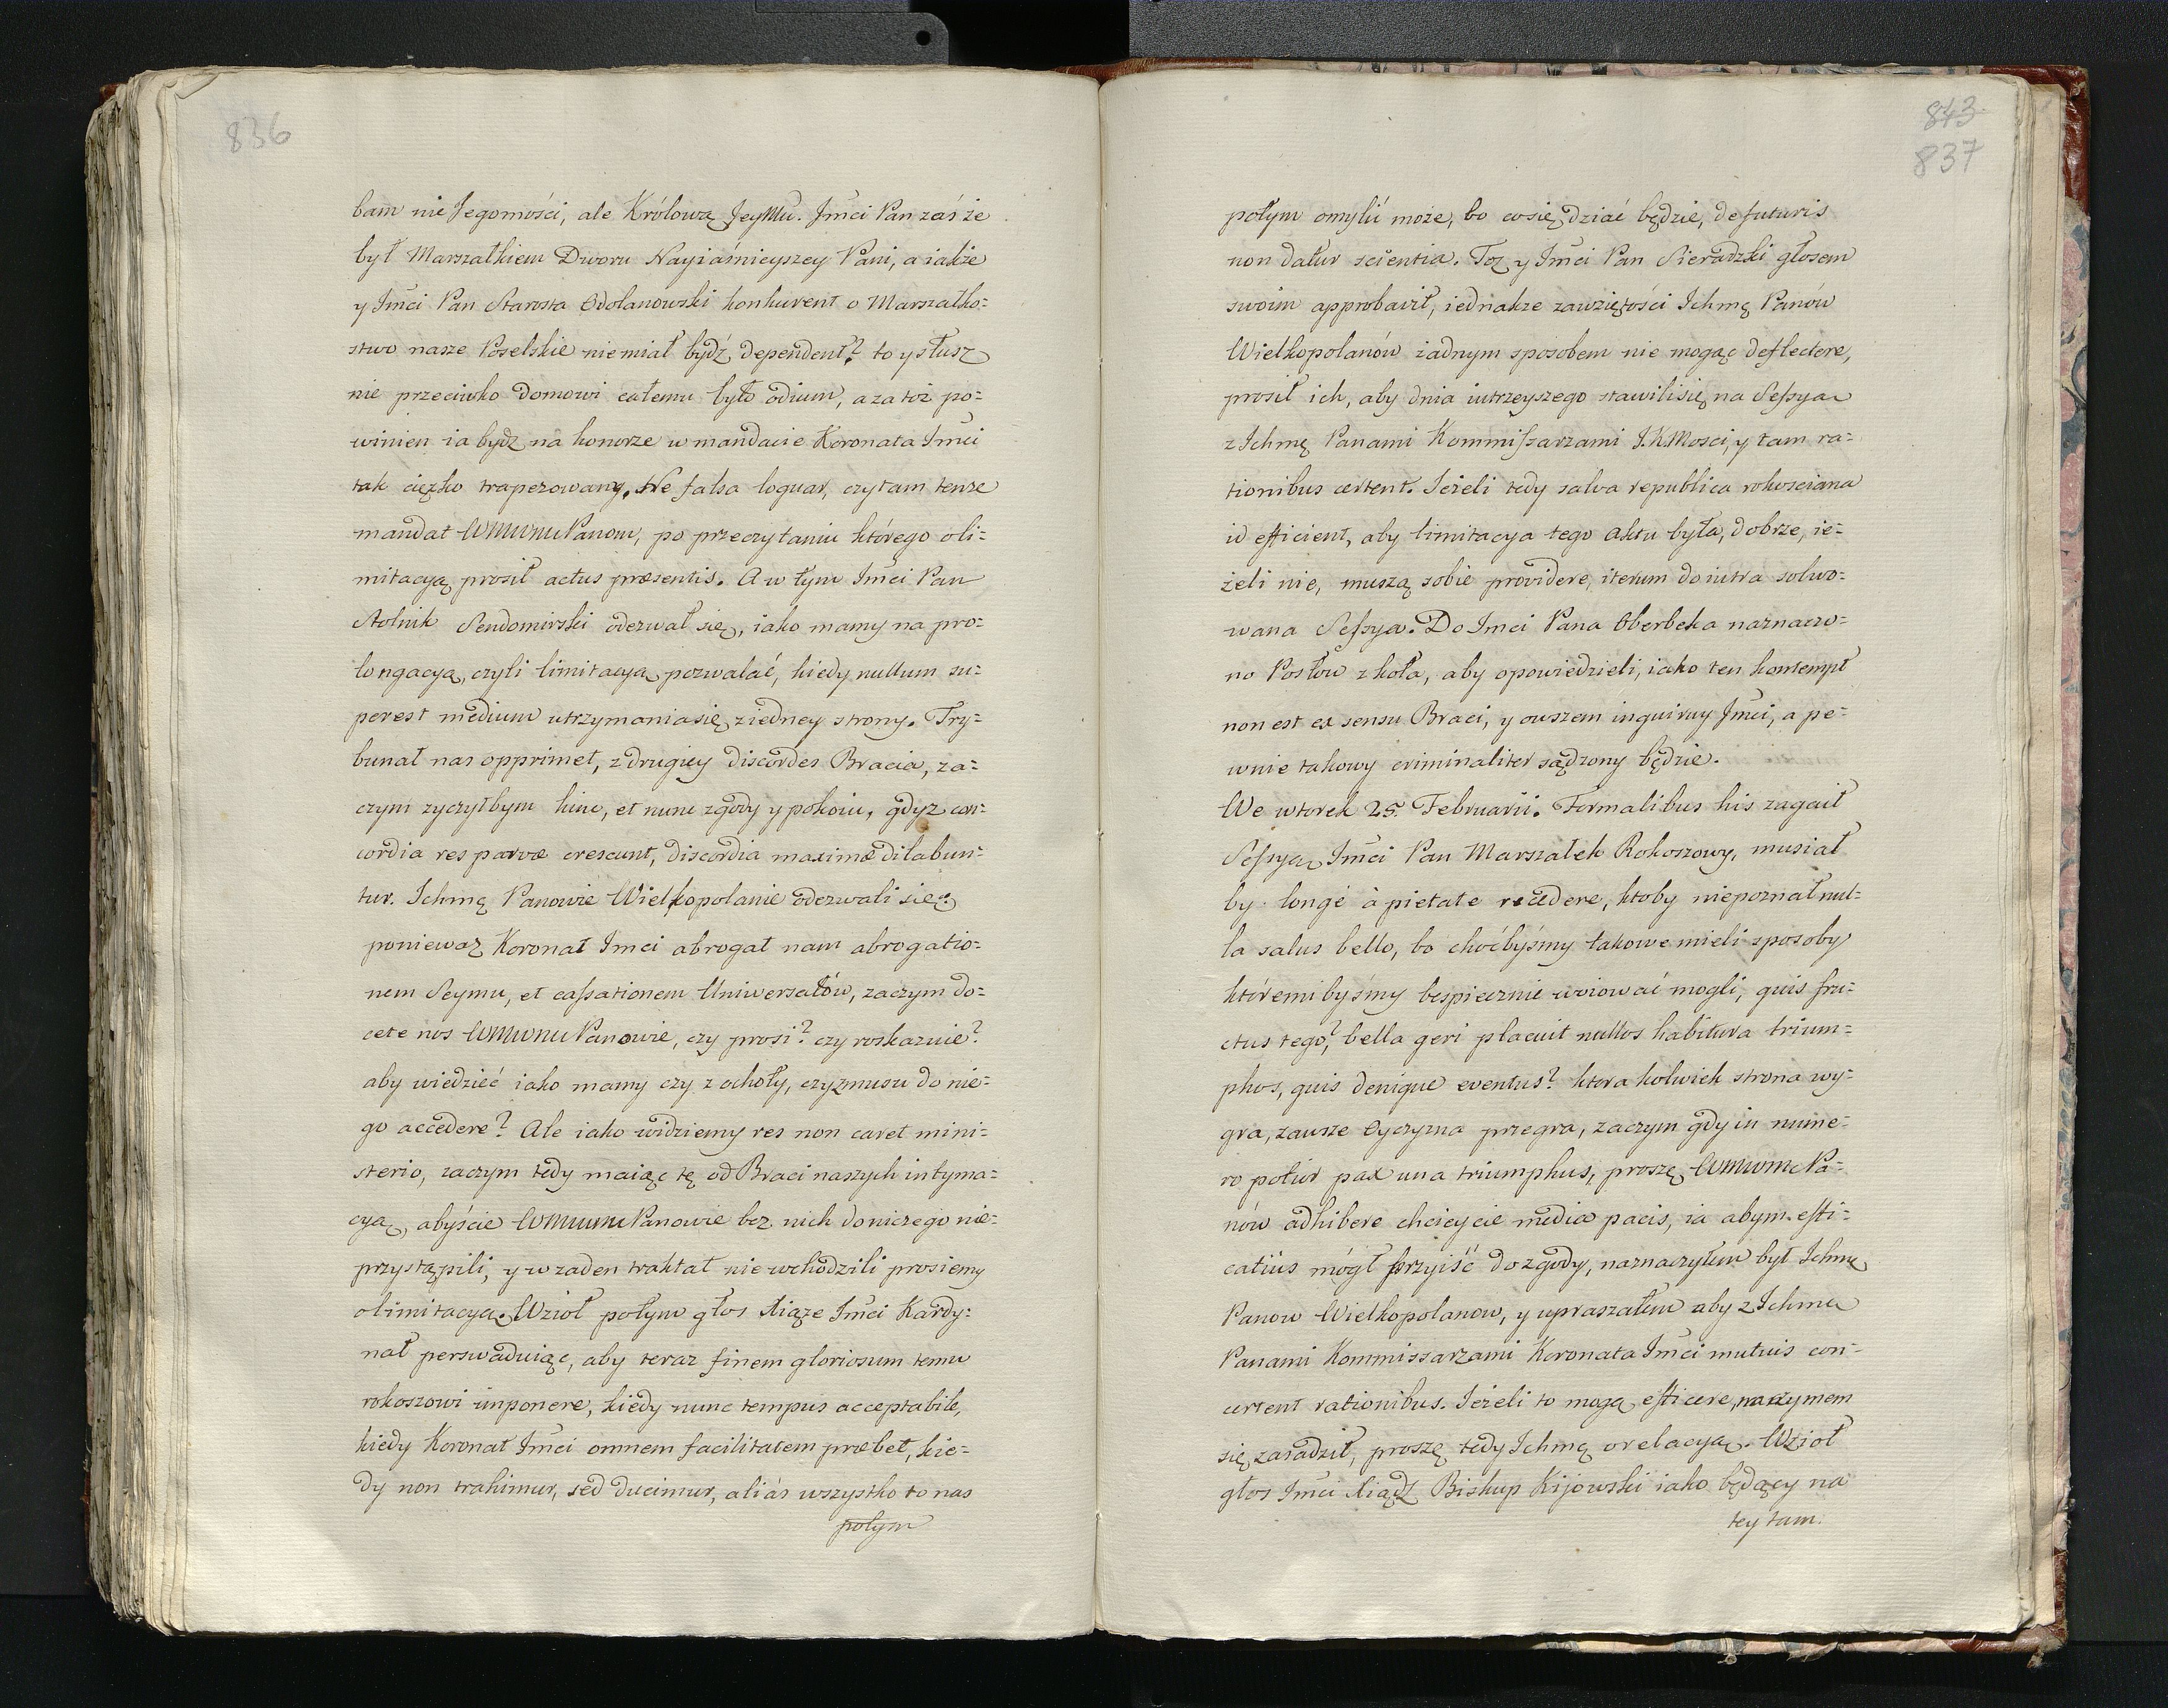 836
bam nie Jegomości, ale Królową JeyMci. Jmći Pan zaś że
był Marszałkiem Dworu Nayiaśnieyszey Pani, a iakże
y Jmći Pan Starosta Odolanowski konkurent o Marszałko=
stwo nasze Poselskie nie miał bydź dependent? to y słusz
nie przeciwko Domowi całemu było odium, a za toż po=
winien ia bydz na honorze w mandacie Koronata Jmći
tak cięzko traperowany. Ne falsa loquar, czytam tenze
mandat WMMciu Panom, po przeczytaniu którego o li=
mitacyą prosił actus præsentis. A w tym Jmći Pan
Stolnik Sendomirski odezwał się, iako mamy na pro=
longacyą, czyli limitacyą pozwalać, kiedy nullum su=
perest medium utrzymania się, z iedney strony. Try=
bunał nas opprimet, z drugiey discordes Bracia, za=
czym zyczyłbym hinc, et nunc zgody y pokoiu, gdyz con=
cordia res parvæ crescunt, discordia maximæ dilabun=
tur. Ichmę Panowie Wielkopolanie odezwali się:
poniewaz Koronat Jmci abrogat nam abrogatio=
nem Seymu, et cassationem Uniwersałów, zaczym do=
cete nos WMMciu Panowie, czy prosi? czy roskazuie?
aby wiedzieć iako mamy czy z ochoty, czy z musu do nie=
go accedere? Ale iako widziemy res non caret mini=
sterio, zaczym tedy maiąc tę od Braci naszych intyma=
cyą, abyście WMMciu Panowie bez nich do niczego nie=
przystąpili, y w zaden traktat nie wchodzili prosiemy
o limitacyą. Wzioł potym głos Xiąze Jmći Kardy=
nał perswaduiąc, aby teraz finem gloriosum temu
rokoszowi imponere, kiedy nunc tempus acceptabile,
kiedy Koronat Jmći omnem facilitatem præbet, kie=
dy non trahimur, sed ducimur, aliás wszystko to nas
potym
843
837
potym omylić może, bo co się dziać będzie, de futuris
non datur scientia. Toz y Jmći Pan Sieradzki głosem
swoim approbavit, iednakze zawziętości Ichmę Panów
Wielkopolanów żadnym sposobem nie mogąc deflectere,
prosił ich, aby dnia iutrzeyszego stawili się na Sessyą
z Ichmę Panami Kommissarzami J.K.Mosci, y tam ra=
tionibus certent. Ieżeli tedy salva republica rokosciana
id efficient, aby limitacya tego aktu była, dobrze, ie=
żeli nie, muszą sobie providere, iterum do iutra solwo=
wana Sessya. Do Jmci Pana Oberbeka naznaczo=
no Posłow z koła, aby opowiedzieli, iako ten kontempt
non est ex sensu Braci, y owszem inquiruy Jmći, a pe=
wnie takowy criminaliter sądzony będzie.
We wtorek 25. Februarii. Formalibus his zagaił
Sessyą Jmći Pan Marszałek Rokoszowy, musiał
by longé à pietate recedere, ktoby niepoznał nul=
la salus bello, bo choćbyśmy takowe mieli sposoby
któremi byśmy bespiecznie woiować mogli, quis fru=
ctus tego? bella geri placuit nullos habitura trium=
phos, quis denique eventus? ktora kolwiek strona wy=
gra, zawsze Oyczyzna przegra, zaczym gdy in nume=
ro potior pax una triumphus, proszę WMMciu Pa=
nów adhibere chcieycie media pacis, ia abym effi=
catius mógł przyiść do zgody, naznaczyłem był Ichmę
Panow Wielkopolanow, y upraszałem aby z Ichmę
Panami Kommissarzami Koronata Jmći mutuis con=
certent rationibus. Ieżeli to mogą efficere, na czymem
się zasadził, proszę tedy Ichmę o relacyą. Wzioł
głos Jmći Xiądz Biskup Kijowski iako będący na
tey tam: